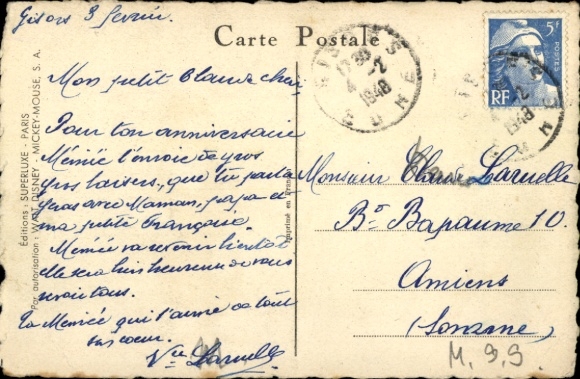 Gisors 3 fevrier.
Carte Postale
Mon petit Claude cheri
Pour ton anniversaire
Mémée t'envoie de gros
gros baisers, que tu partageras avec Maman, papa et
ma petite Françoise.
Mémée va revenir bientôt
Elle sera bien heureuse de vous
revoir tous.
Ta Mémée qui t'aime de tout
son coeur.
Vve Laruelle
Éditions: SUPERLUXE - PARIS
Par autorisation: WALT DISNEY - MICKEY-MOUSE, S. A.
Imprimé en France
GISORS
4 -2
1948
EURE
5F
POSTES
RF
Monsieur Claude Laruelle
Bd Bapaume 10.
Amiens
(Somme)
M. 9 9.